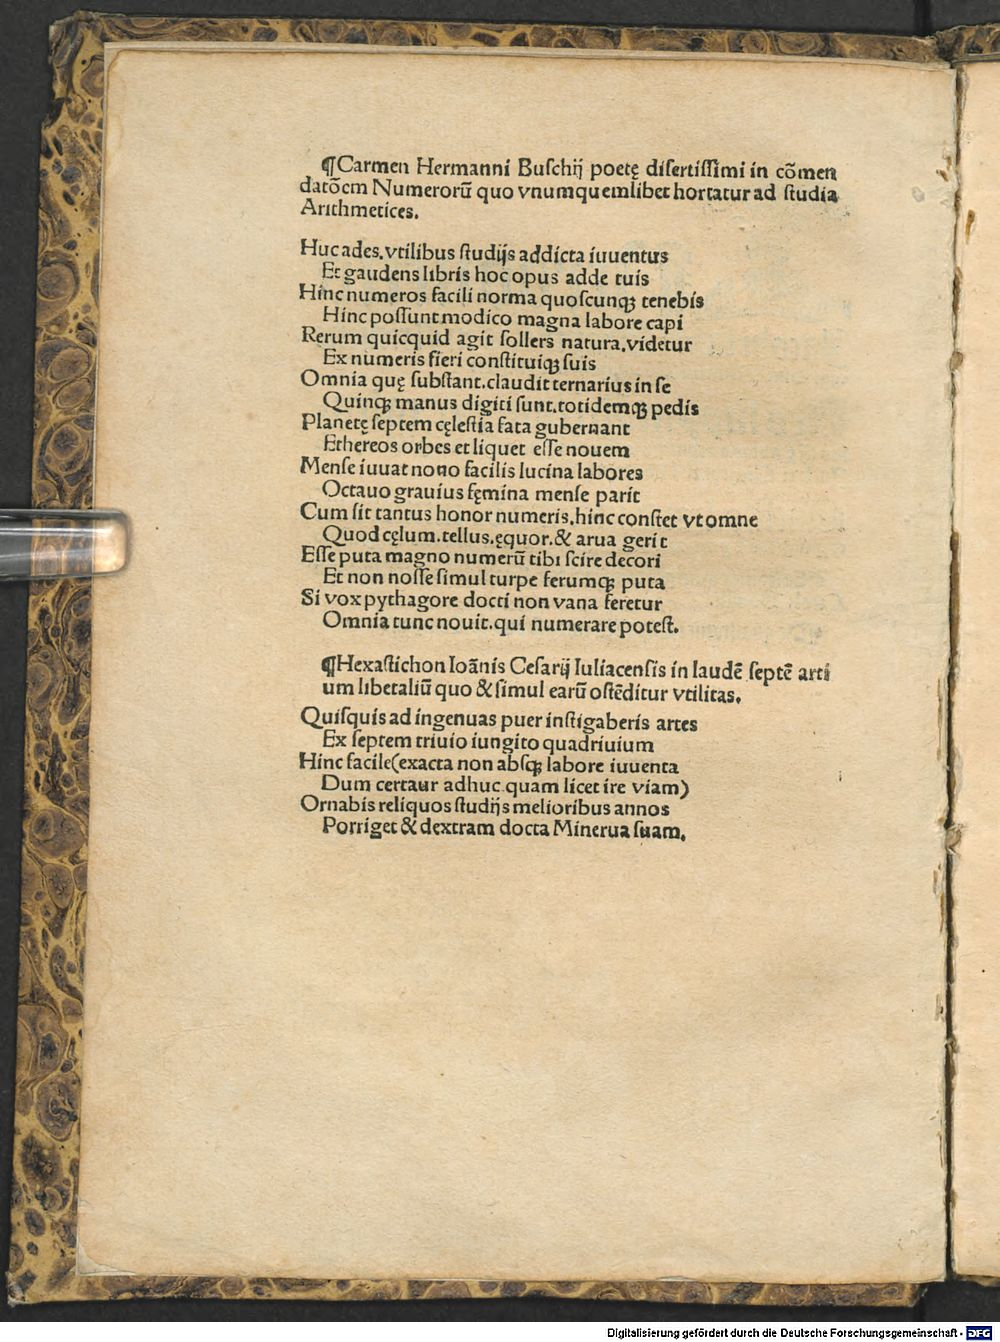 ¶Carmen Hermanni Buſchij poetę diſertiſſimi in cõmen
datõem Numerorũ quo vnumquemlibet hortatur ad ſtudia
Arithmetices.
Huc ades.vtilibus ſtudijs addicta iuuentus
Et gaudens libris hoc opus adde tuis
Hinc numeros facili norma quoſcunqꝫ tenebis
Hinc poſſunt modico magna labore capi
Rerum quicquid agit ſollers natura.videtur
Ex numeris fieri conſtituiqꝫ ſuis
Omnia quę ſubſtant.claudit ternarius in ſe
Quinqꝫ manus digiti ſunt.totidemqꝫ pedis
Planetę ſeptem cęleſtia fata gubernant
Ethereos orbes et liquet eſſe nouem
Menſe iuuat nono facilis lucina labores
Octauo grauius fęmina menſe parit
Cum ſit tantus honor numeris.hinc conſtet vt omne
Quod cęlum.tellus.ęquor.& arua gerit
Eſſe puta magno numerũ tibi ſcire decori
Et non noſſe ſimul turpe ferumqꝫ puta
Si vox pythagore docti non vana feretur
Omnia tunc nouit.qui numerare poteſt.
¶Hexaſtichon Ioãnis Ceſarij Iuliacenſis in laudẽ ſeptẽ arti
um liberaliũ quo & ſimul earũ oſtẽditur vtilitas.
Quiſquis ad ingenuas puer inſtigaberis artes
Ex ſeptem triuio iungito quadriuium
Hinc facile(exacta non abſqꝫ labore iuuenta
Dum certaur adhuc quam licet ire viam)
Ornabis reliquos ſtudijs melioribus annos
Porriget & dextram docta Minerua ſuam.
Digitalisierung gefördert durch die Deutsche Forschungsgemeinschaft - DFG